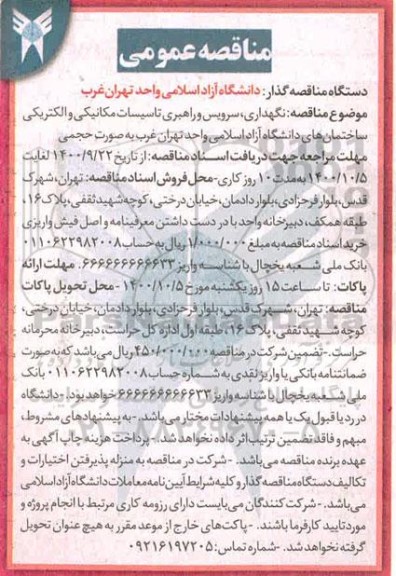 مناقصه عمومی
دستگاه مناقصه گذار: دانشگاه آزاد اسلامی واحد تهران غرب
موضوع مناقصه: نگهداری، سرویس و راهبری تاسیسات مکانیکی و الکتریکی
ساختمان های دانشگاه آزاد اسلامی واحد تهران غرب به صورت حجمی
مهلت مراجعه جهت دریافت اسناد مناقصه: از تاریخ ۱۴۰۰/۹/۲۲ لغایت
۱۴۰۰/۱۰/۵ به مدت ۱۰ روز کاری - محل فروش اسناد مناقصه: تهران، شهرک
قدس، بلوار فرحزادی، بلوار دادمان، خیابان درختی، کوچه شهید ثقفی، پلاک ۱۶،
طبقه همکف، دبیرخانه واحد با در دست داشتن معرفینامه و اصل فیش واریزی
خرید اسناد مناقصه به مبلغ ۱/۰۰۰/۰۰۰ ریال به حساب ۰۱۱۰۶۲۲۹۸۲۰۰۸
بانک ملی شعبه یخچال با شناسه واریز ۶۶۶۶۶۶۶۶۶۶۳۳. مهلت ارائه
پاکات: تا ساعت ۱۵ روز یکشنبه مورخ ۱۴۰۰/۱۰/۵ - محل تحویل پاکات
مناقصه: تهران، شهرک قدس، بلوار فرحزادی، بلوار دادمان، خیابان درختی،
کوچه شهید ثقفی، پلاک ۱۶، طبقه اول اداره کل حراست، دبیرخانه محرمانه
حراست. - تضمین شرکت در مناقصه ۴۵۰/۰۰۰/۰۰۰ ریال می باشد که به صورت
ضمانتنامه بانکی یا واریز نقدی به شماره حساب ۰۱۱۰۶۲۲۹۸۲۰۰۸ بانک
ملی شعبه یخچال با شناسه واریز ۶۶۶۶۶۶۶۶۶۶۳۳ خواهد بود. - دانشگاه
در رد یا قبول یک یا همه پیشنهادات مختار می باشد. - به پیشنهادهای مشروط،
مبهم و فاقد تضمین ترتیب اثر داده نخواهد شد. - پرداخت هزینه چاپ آگهی به
عهده برنده مناقصه می باشد. - شرکت در مناقصه به منزله پذیرفتن اختیارات و
تکالیف دستگاه مناقصه گذار و کلیه شرایط آیین نامه معاملات دانشگاه آزاد اسلامی
می باشد. - شرکت کنندگان می بایست دارای رزومه کاری مرتبط با انجام پروژه و
مورد تایید کارفرما باشند. - پاکت های خارج از موعد مقرر به هیچ عنوان تحویل
گرفته نخواهد شد. - شماره تماس: ۰۹۲۱۶۱۹۷۲۰۵